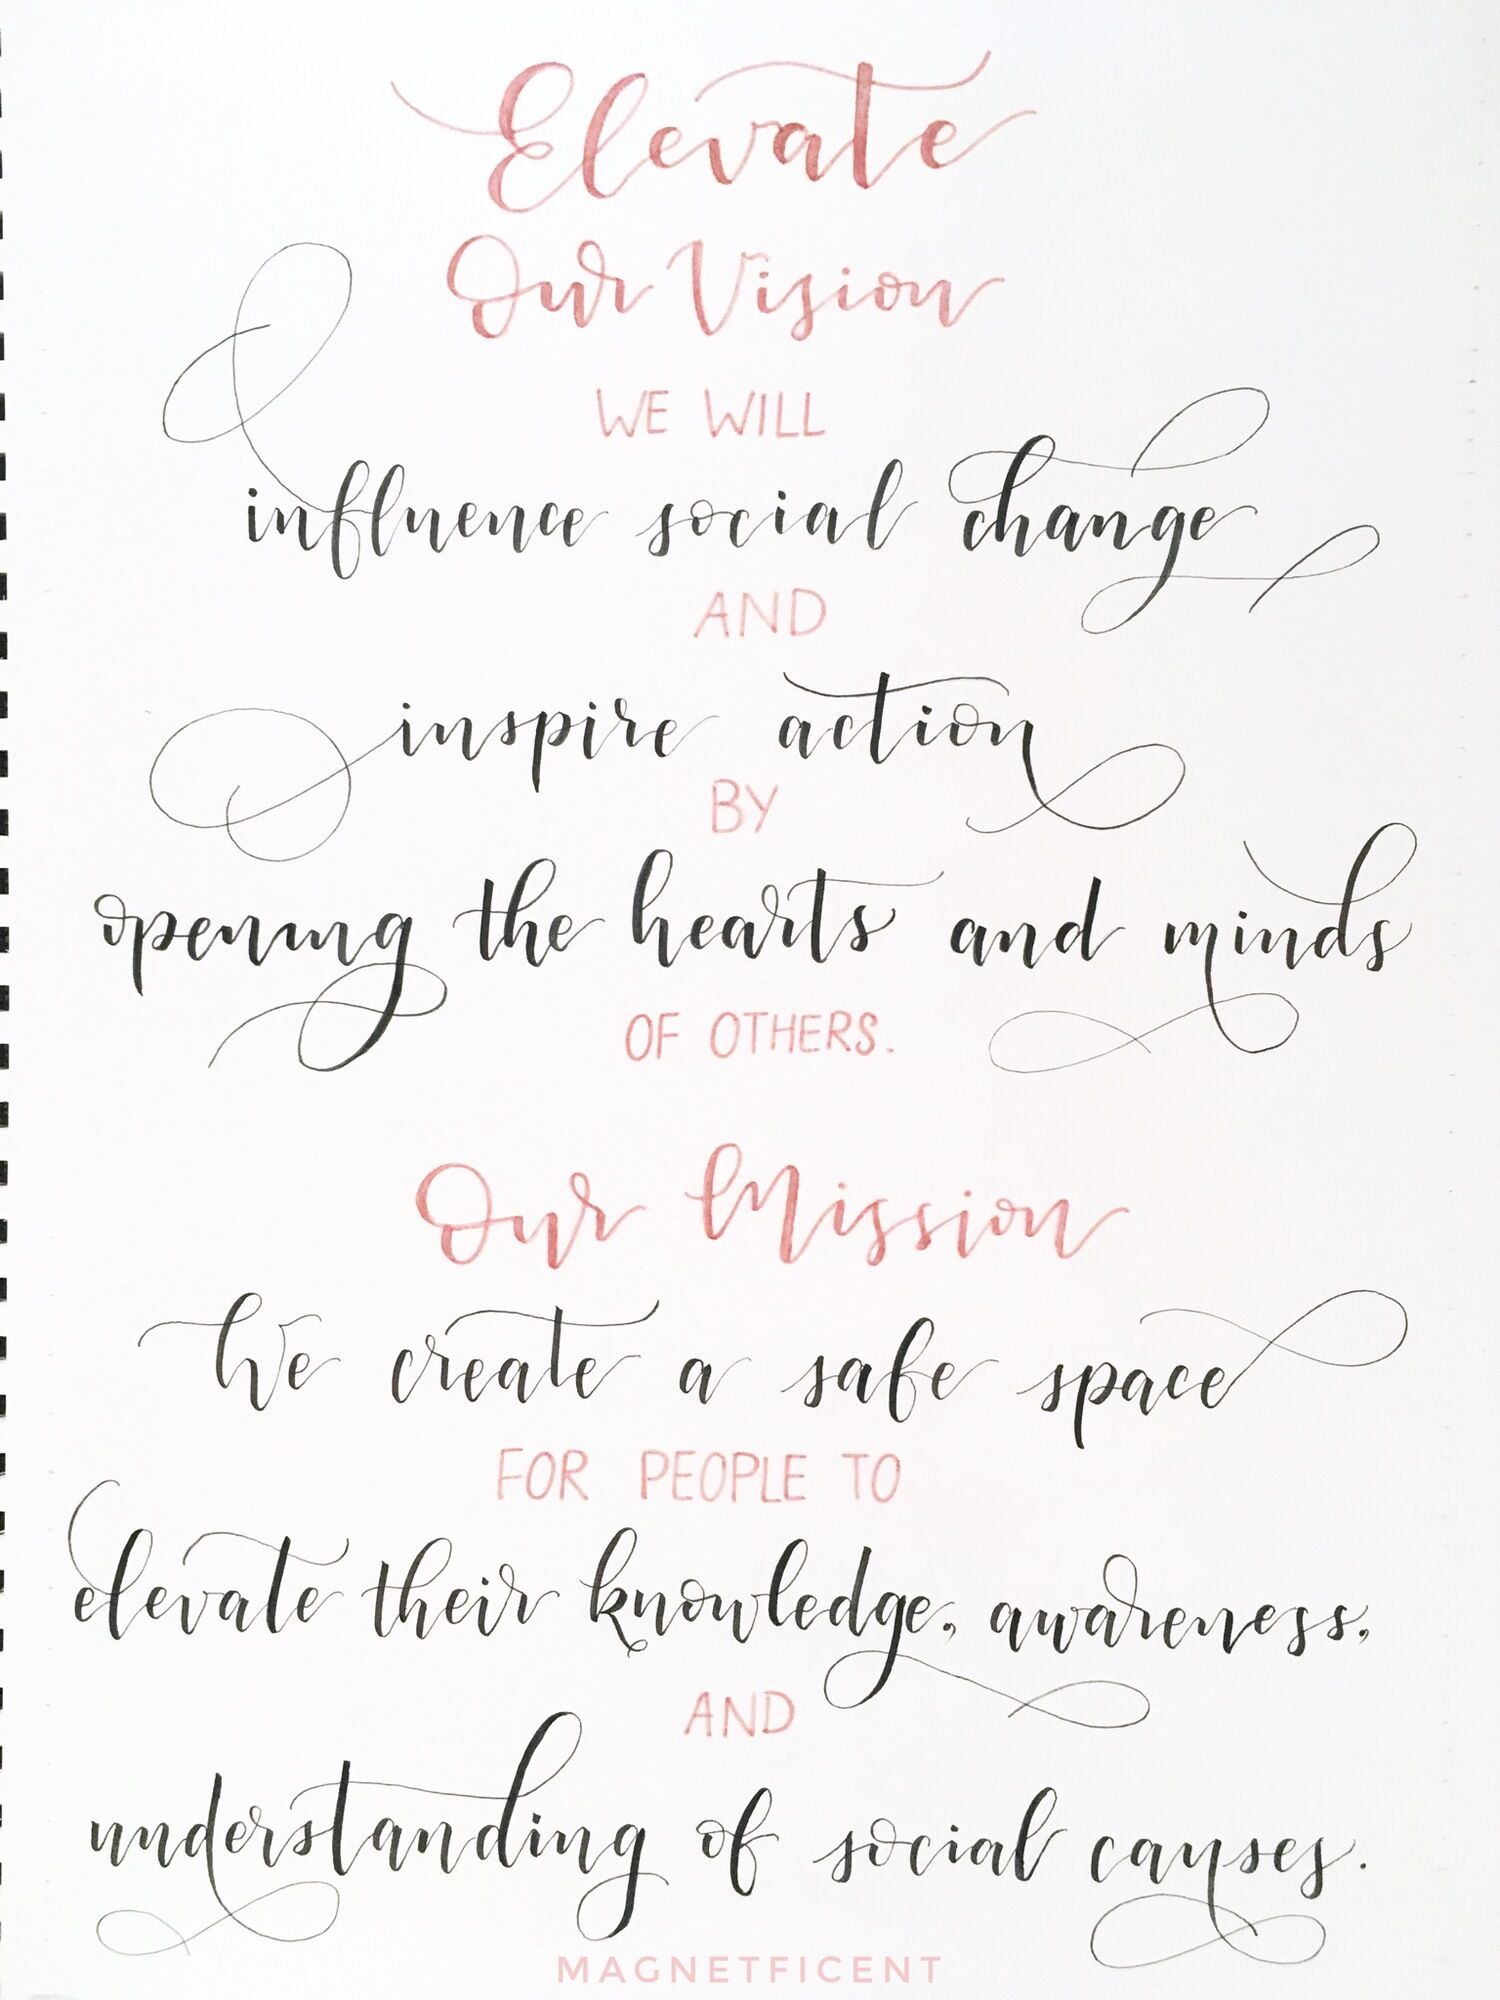 Elevate
Our Vision
WE WILL
influence social change
AND
inspire action
BY
opening the hearts and minds
OF OTHERS.
Our Mission
We create a safe space
FOR PEOPLE TO
elevate their knowledge, awareness,
AND
understanding of social causes.
MAGNETFICENT